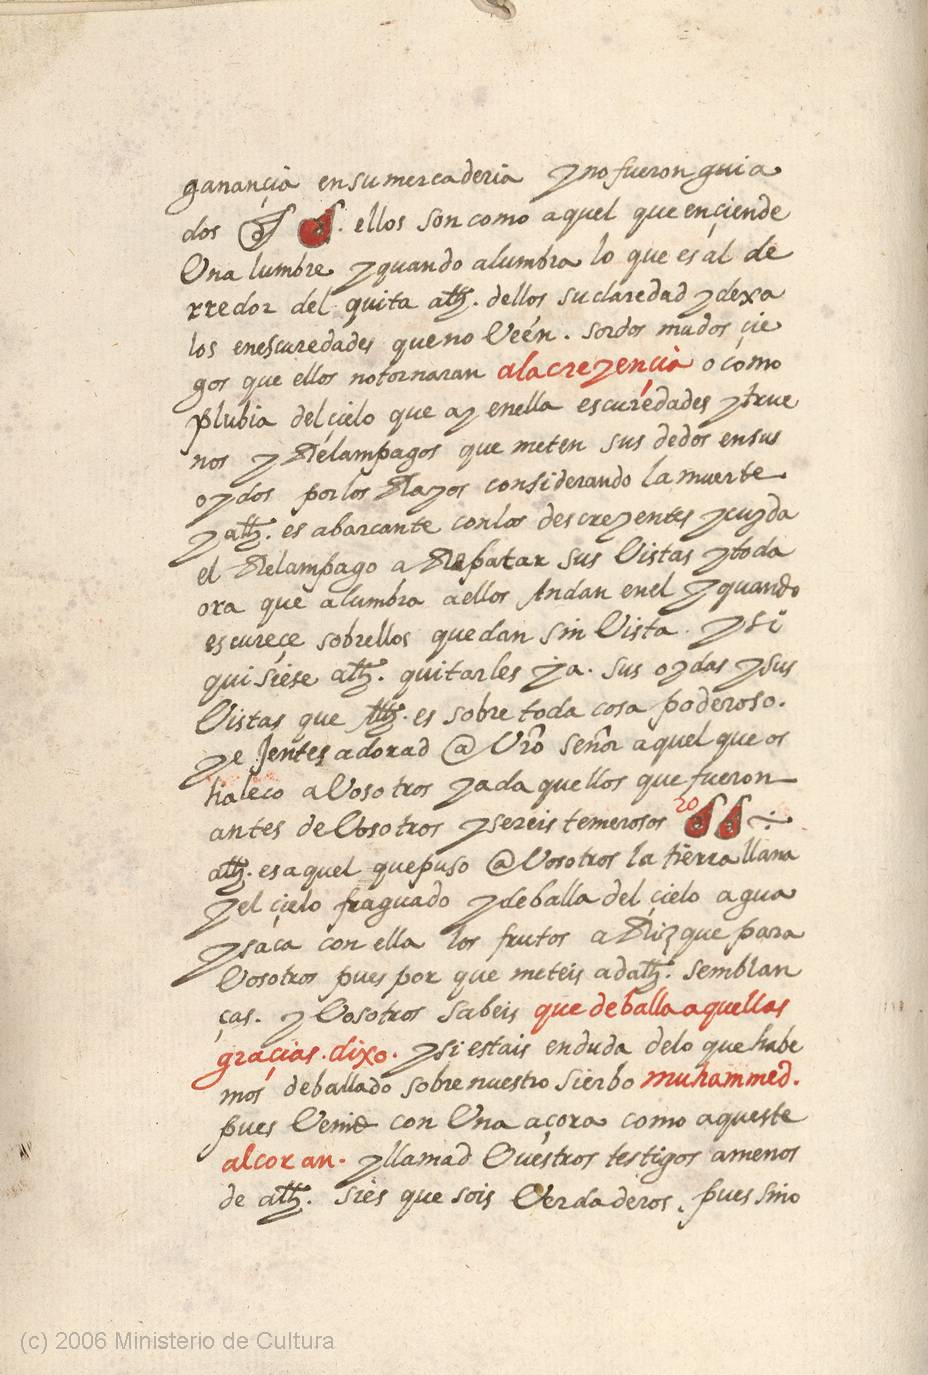 ganançia en su mercaderia y no fueron guia
dos . ellos son como aquel que ençiende
Una lumbre y quando alumbra lo que es al de
rredor del quita allh. dellos su claredad y dexa
los en escuredades que no Veén . sordos mudos çie
gos que ellos no tornaran a la creyençia o como
plubia del çielo que ay en ella escuredades y true
nos y Relampagos que meten sus dedos en sus
oydos por los Rayos considerando la muerte
y allh. es abarcante con los descreyentes y cuyda
el Relampago a Repatar sus Vistas y toda
ora que alumbra a ellos Andan en el y quando
escureçe sobrellos quedan sin Vista . y si
quisiese allh. quitarles ya . sus oydas y sus
Vistas que Allh. es sobre toda cosa poderoso.
ye Jentes adorad @ Vrõ señor aquel que os
haleco a Vosotros y ada quellos que fueron
antes de Vosotros y sereis temerosos 20
allh. es aquel que puso @ Vosotros la tierra llana
y el çielo fraguado y deballa del çielo agua
y saca con ella los frutos a Rizque para
Vosotros pues por que meteis ad allh. semblan
ças. y Vosotros sabeis que deballa aquellas
graçias . dixo . y si estais en duda de lo que habe
mos deballado sobre nuestro sierbo muhammed.
pues Venid con Una açora como aqueste
alcoran . y llamad Vuestros testigos a menos
de allh. si es que sois Verdaderos . pues sino
(c) 2006 Ministerio de Cultura